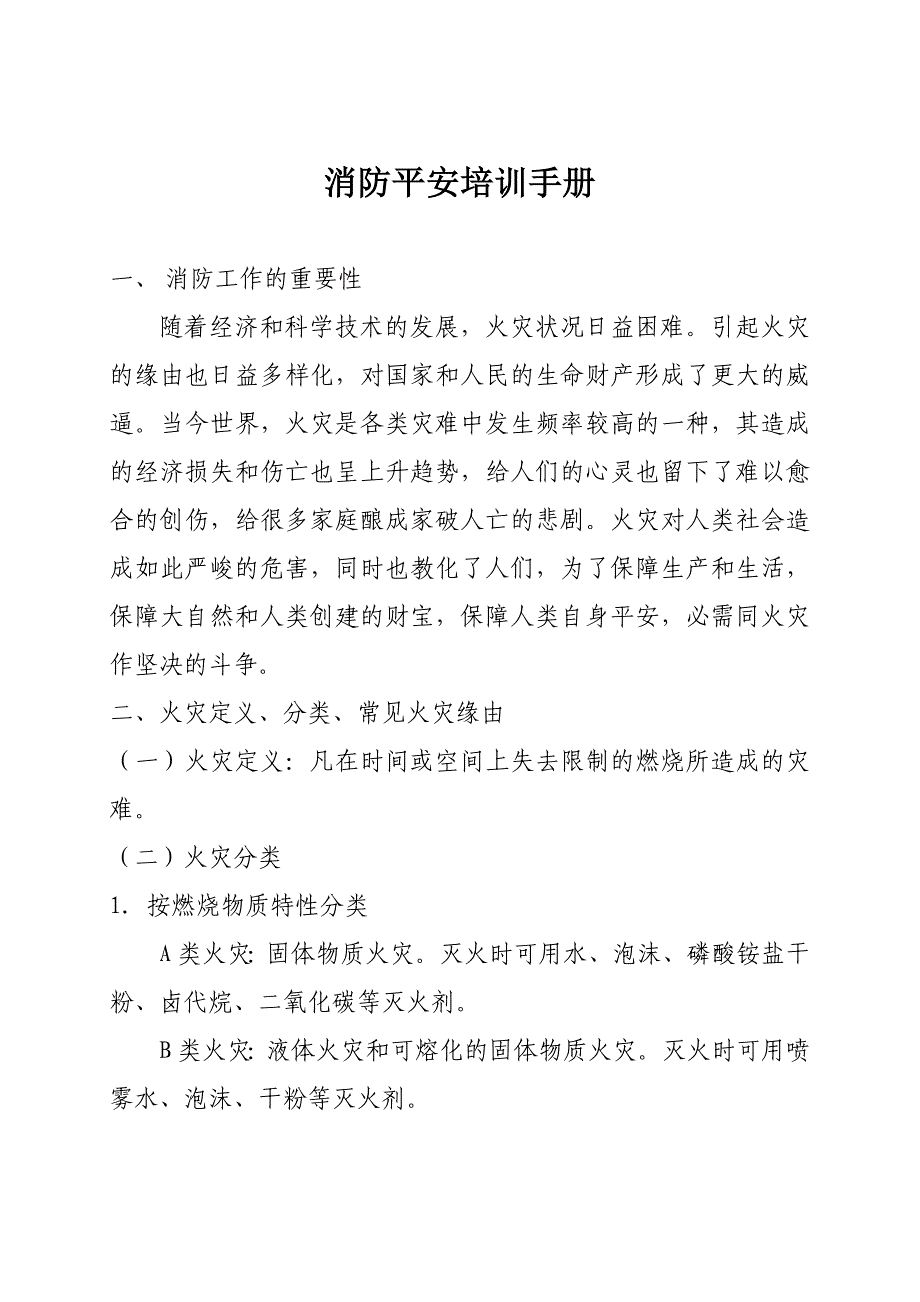 消防平安培训手册
一、 消防工作的重要性
随着经济和科学技术的发展，火灾状况日益困难。引起火灾
的缘由也日益多样化，对国家和人民的生命财产形成了更大的威
逼。当今世界，火灾是各类灾难中发生频率较高的一种，其造成
的经济损失和伤亡也呈上升趋势，给人们的心灵也留下了难以愈
合的创伤，给很多家庭酿成家破人亡的悲剧。火灾对人类社会造
成如此严峻的危害，同时也教化了人们，为了保障生产和生活，
保障大自然和人类创建的财宝，保障人类自身平安，必需同火灾
作坚决的斗争。
二、火灾定义、分类、常见火灾缘由
（一）火灾定义：凡在时间或空间上失去限制的燃烧所造成的灾
难。
（二）火灾分类
1. 按燃烧物质特性分类
A 类火灾：固体物质火灾。灭火时可用水、泡沫、磷酸铵盐干
粉、卤代烷、二氧化碳等灭火剂。
B 类火灾：液体火灾和可熔化的固体物质火灾。灭火时可用喷
雾水、泡沫、干粉等灭火剂。